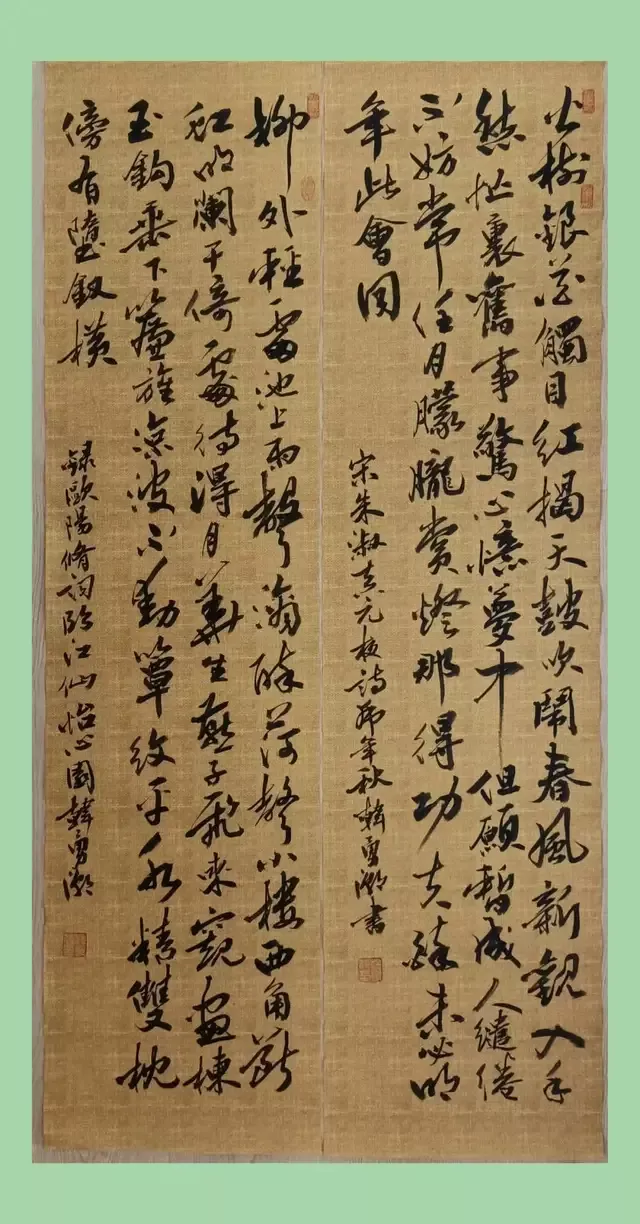 火樹銀花觸目紅揭天鼓吹鬧春風新觀入手
愁忙裏舊事驚心憶夢中但願暫成人繾綣
不妨常任月朦朧賞燈那得功夫醉未必明
年此會同
宋朱淑真元夜詩卯年秋韓勇書
柳外輕雷池上雨聲滴碎荷聲小樓西角斷
虹明瀾干倚處待得月華生燕子飛來窺畫棟
玉鈎垂下簾旌涼波不動簟紋平水精雙枕
傍有墮釵橫
錄歐陽脩詞臨江仙怡心園韓勇